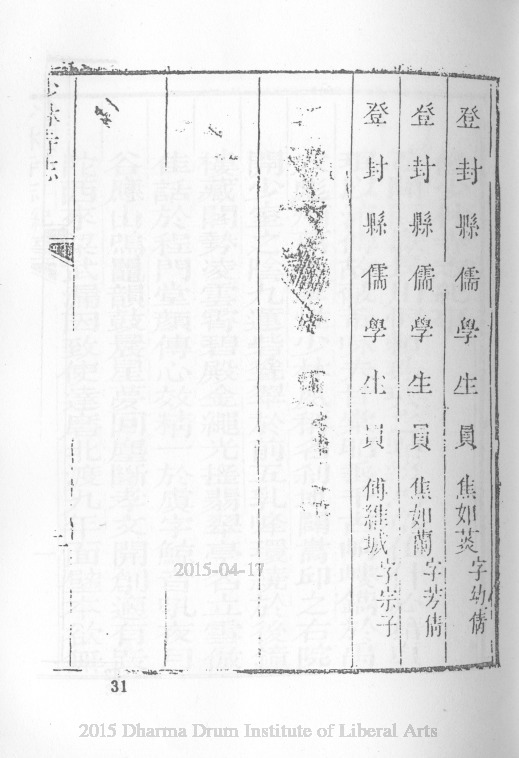 登封縣儒學生員焦如荾字幼倩
登封縣儒學生員焦如蘭字芳倩
登封縣儒學生員傅維城字宗子
少林寺志
31
2015-04-17
2015 Dharma Drum Institute of Liberal Arts